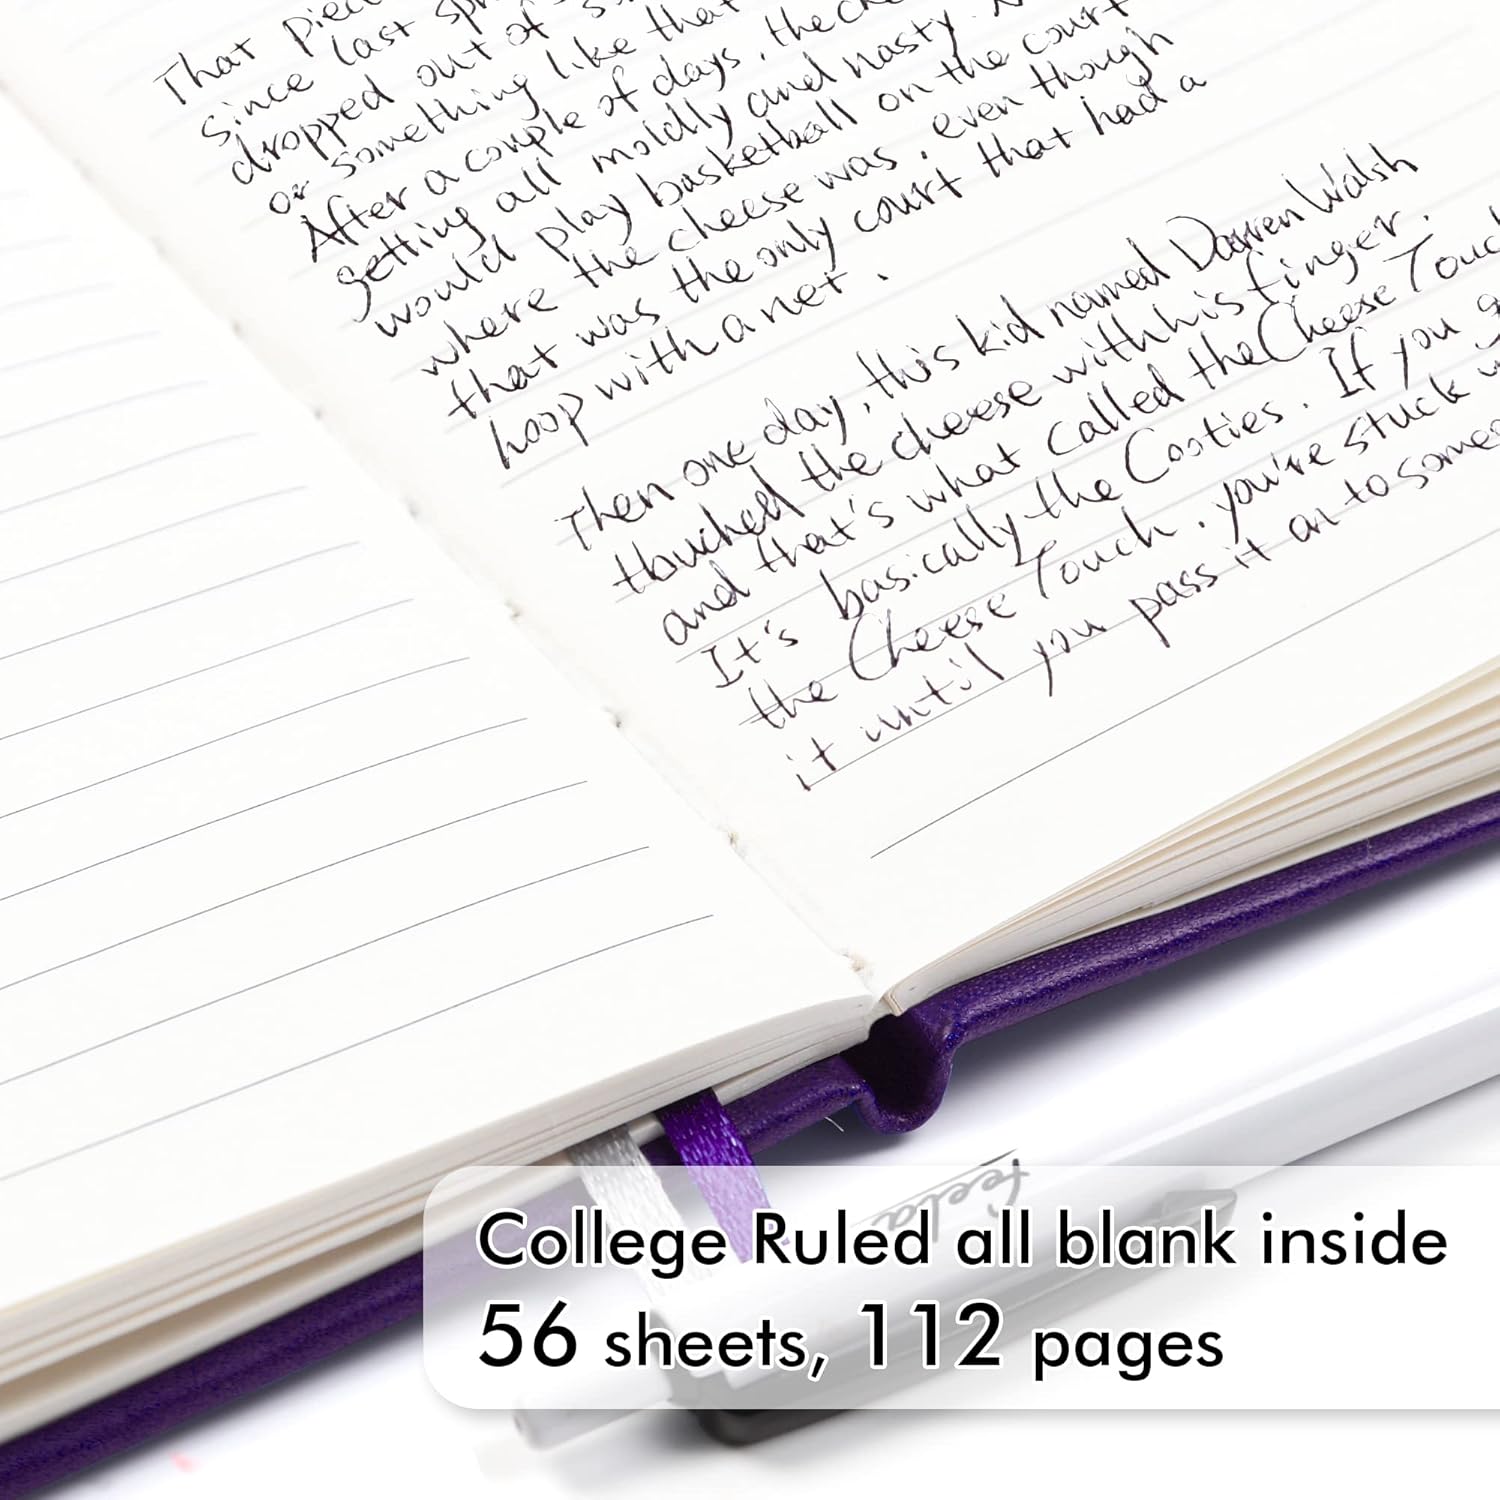 That piec
since last spr
dropped out of s
or something like that
After a couple of days, the che
getting all moldly and nasty. N
would play basketball on the court
where the cheese was, even though
that was the only court that had a
hoop with a net.
Then one day, this kid named Darren Walsh
touched the cheese with his finger.
and that's what called the Cheese Touch
It's basically the Cooties. If you g
the Cheese Touch, you're stuck w
it until you pass it on to some
feela
College Ruled all blank inside
56 sheets, 112 pages